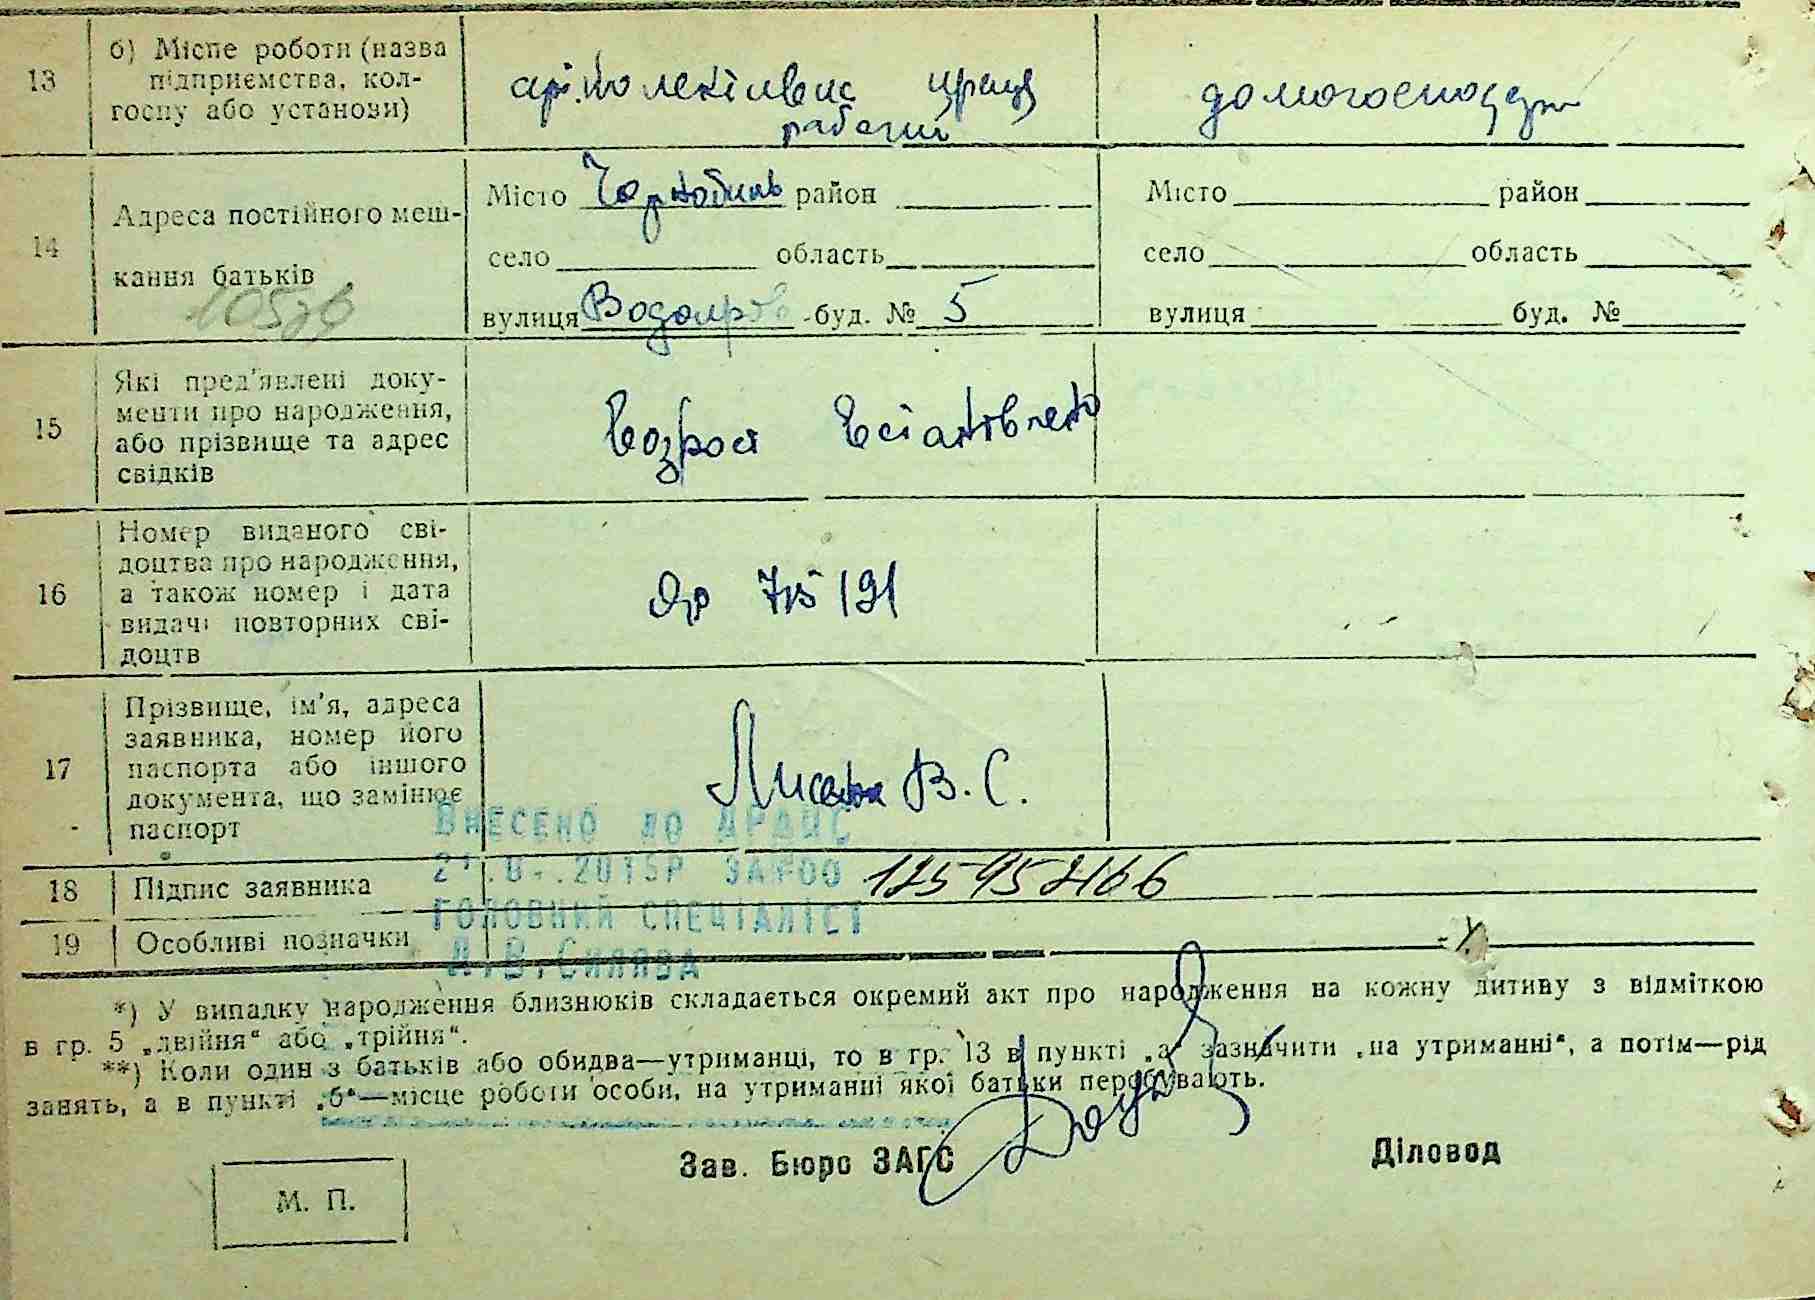 13
б) Місце роботи (назва
підприємства, кол-
госпу або установи)
праця
рабочий
14
Адреса постійного меш-
кання батьків
Місто Чорнобиль район
село область
вулиця буд. № 5
Місто район
село область
вулиця буд. №
15
Які пред'явлені доку-
менти про народження,
або прізвище та адрес
свідків
Возраст Встановлено
16
Номер виданого сві-
доцтва про народження,
а також номер і дата
видачі повторних сві-
доцтв
715191
17
Прізвище, ім'я, адреса
заявника, номер його
паспорта або іншого
документа, що замінює
паспорт
В. С.
Внесено до ДРАЦС
2015р
18
Підпис заявника
головний спеціаліст
19
Особливі позначки
*) У випадку народження близнюків складається окремий акт про народження на кожну дитину з відміткою
в гр. 5 „двійня“ або „трійня“.
**) Коли один з батьків або обидва—утриманці, то в гр. 13 в пункті „а“ зазначити „на утриманні“, а потім—рід
занять, а в пункті „б“—місце роботи особи, на утриманні якої батьки перебувають.
Зав. Бюро ЗАГС
Діловод
М. П.